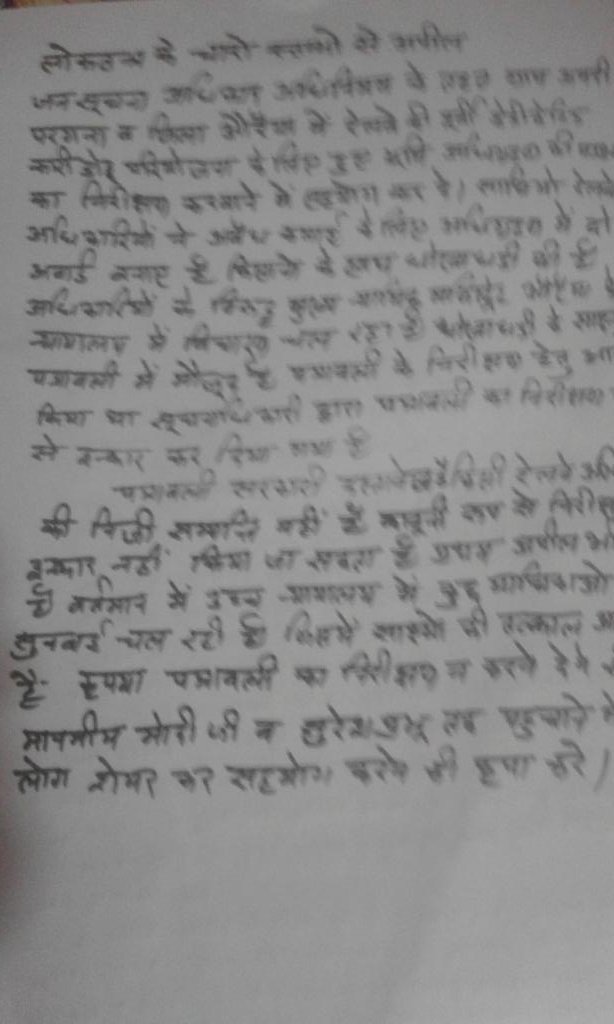 लोकतन्त्र के चारो स्तम्भो से अपील
जन सूचना अधिकार अधिनियम के तहत ग्राम
परगना व जिला औरैया में रेलवे की पूर्वी डेडीकेटिड
करीडोर परियोजना के लिए हुए भूमि अधिग्रहण की
का निरीक्षण करवाने में सहयोग कर दे। साथियो रेलवे
अधिकारियों ने अवैध कमाई के लिए अधिग्रहण में दो
अवार्ड बनाए है किसानो के साथ धोखाधडी की है
अधिकारियों के विरूद्ध मुख्य न्यायिक मजिस्ट्रेट औरैया के
न्यायालय में विचारण चल रहा है धोखाधडी के
पत्रावली में मौजूद है पत्रावली के निरीक्षण हेतु
किया था सूचनाधिकारी द्वारा पत्रावली का निरीक्षण
से इन्कार कर दिया गया है
पत्रावली सरकारी दस्तावेज है किसी रेलवे
की निजी सम्पत्ति नहीं है कानूनी रूप से
इन्कार नहीं किया जा सकता है प्रथम अपील
है वर्तमान में उच्च न्यायालय में कुछ याचिकाओ
सुनवाई चल रही है जिसमें साक्ष्यो की तत्काल
है- कृपया पत्रावली का निरीक्षण न करने देने
माननीय मोदी जी व सुरेश प्रभु तक पहुचाने
लोग शेयर कर सहयोग करने की कृपा करे।